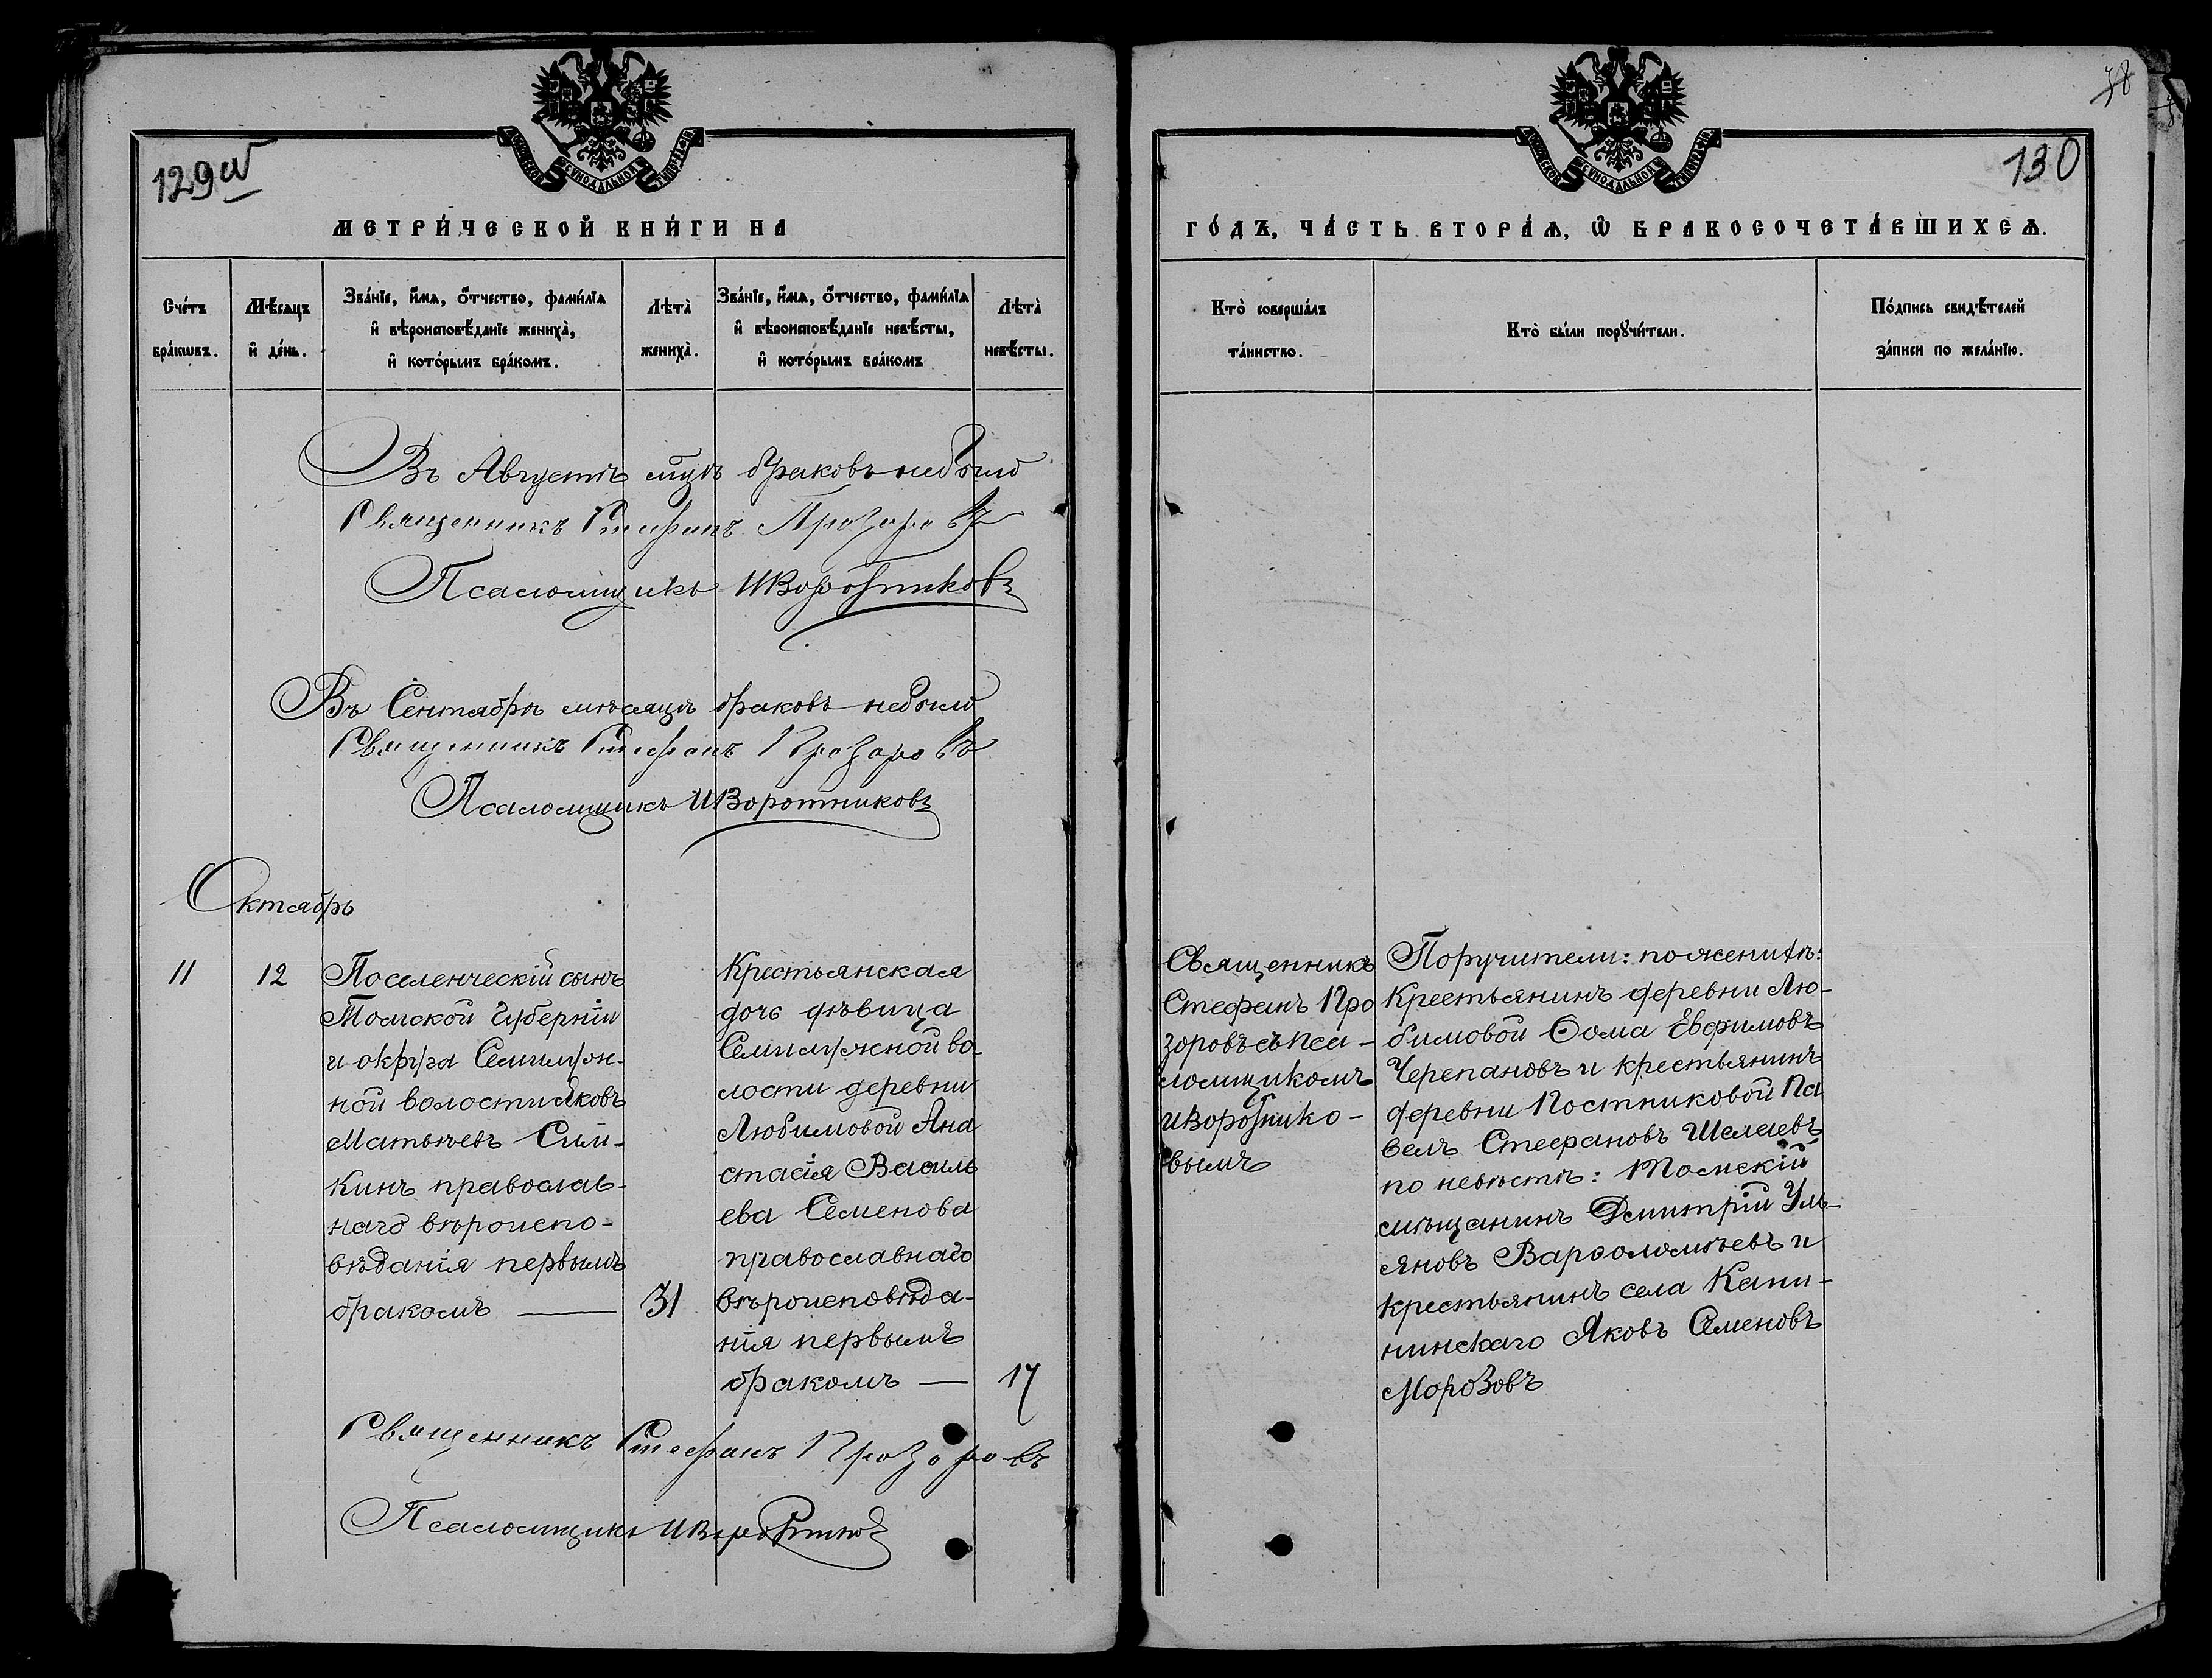 129 об
МЕТРИ́ЧЕСКОЙ КНИ́ГИ НА
Сче́тъ бра́кѡвъ.
Мѣ́сѧцъ и҆ де́нь.
Зва́нїе, и҆́мѧ, ѻ҆́тчество, фами́лїѧ и҆ вѣроисповѣ́данїе жениха̀, и҆ кото́рымъ бра́комъ.
Лѣта̀ жениха̀.
Зва́нїе, и҆́мѧ, ѻ҆́тчество, фами́лїѧ и҆ вѣроисповѣ́данїе невѣ́сты, и҆ кото́рымъ бра́комъ
Лѣта̀ невѣ́сты.
Въ Августѣ мцѣ браковъ небыло
Священникъ Стефанъ Прозоровъ
Псаломщикъ И Воротниковъ
Въ Сентябрѣ мѣсяцѣ браковъ небыло
Священникъ Стефанъ Прозоровъ
Псаломщикъ И Воротниковъ
Октябрь
11
12
Поселенческій сынъ
Томской губерніи
и округа Семилуж-
ной волости Яковъ
Матвѣевъ Сим-
кинъ православ-
наго вѣроиспо-
вѣданія первымъ
бракомъ —
31
Крестьянская
дочь дѣвица
Семилужной во-
лости деревни
Любимовой Ана
стасія Василь
ева Семенова
православнаго
вѣроисповѣда-
нія первымъ
бракомъ —
17
Священникъ Стефанъ Прозоровъ
Псаломщикъ И Воротниковъ
38
130
ГО́ДЪ, ЧА́СТЬ ВТОРА́Ѧ, Ѡ҆ БРАКОСОЧЕТА́ВШИХСѦ.
Кто̀ соверша́лъ та́инство.
Кто̀ бы́ли порꙋчи́тели.
По́дпись свидѣ́телей за́писи по жела́нїю.
Священникъ
Стефанъ Про
зоровъ съ пса-
ломщикомъ
И Воротнико-
вымъ
Поручители: по женихѣ:
крестьянинъ деревни Лю-
бимовой Ѳома Евфимовъ
Черепановъ и крестьянинъ
деревни Постниковой Па
велъ Стефановъ Шелаевъ
по невѣстѣ: Томскій
мѣщанинъ Дмитрій Уль-
яновъ Варѳоломѣевъ и
крестьянинъ села Кани-
нинскаго Яковъ Семеновъ
Морозовъ